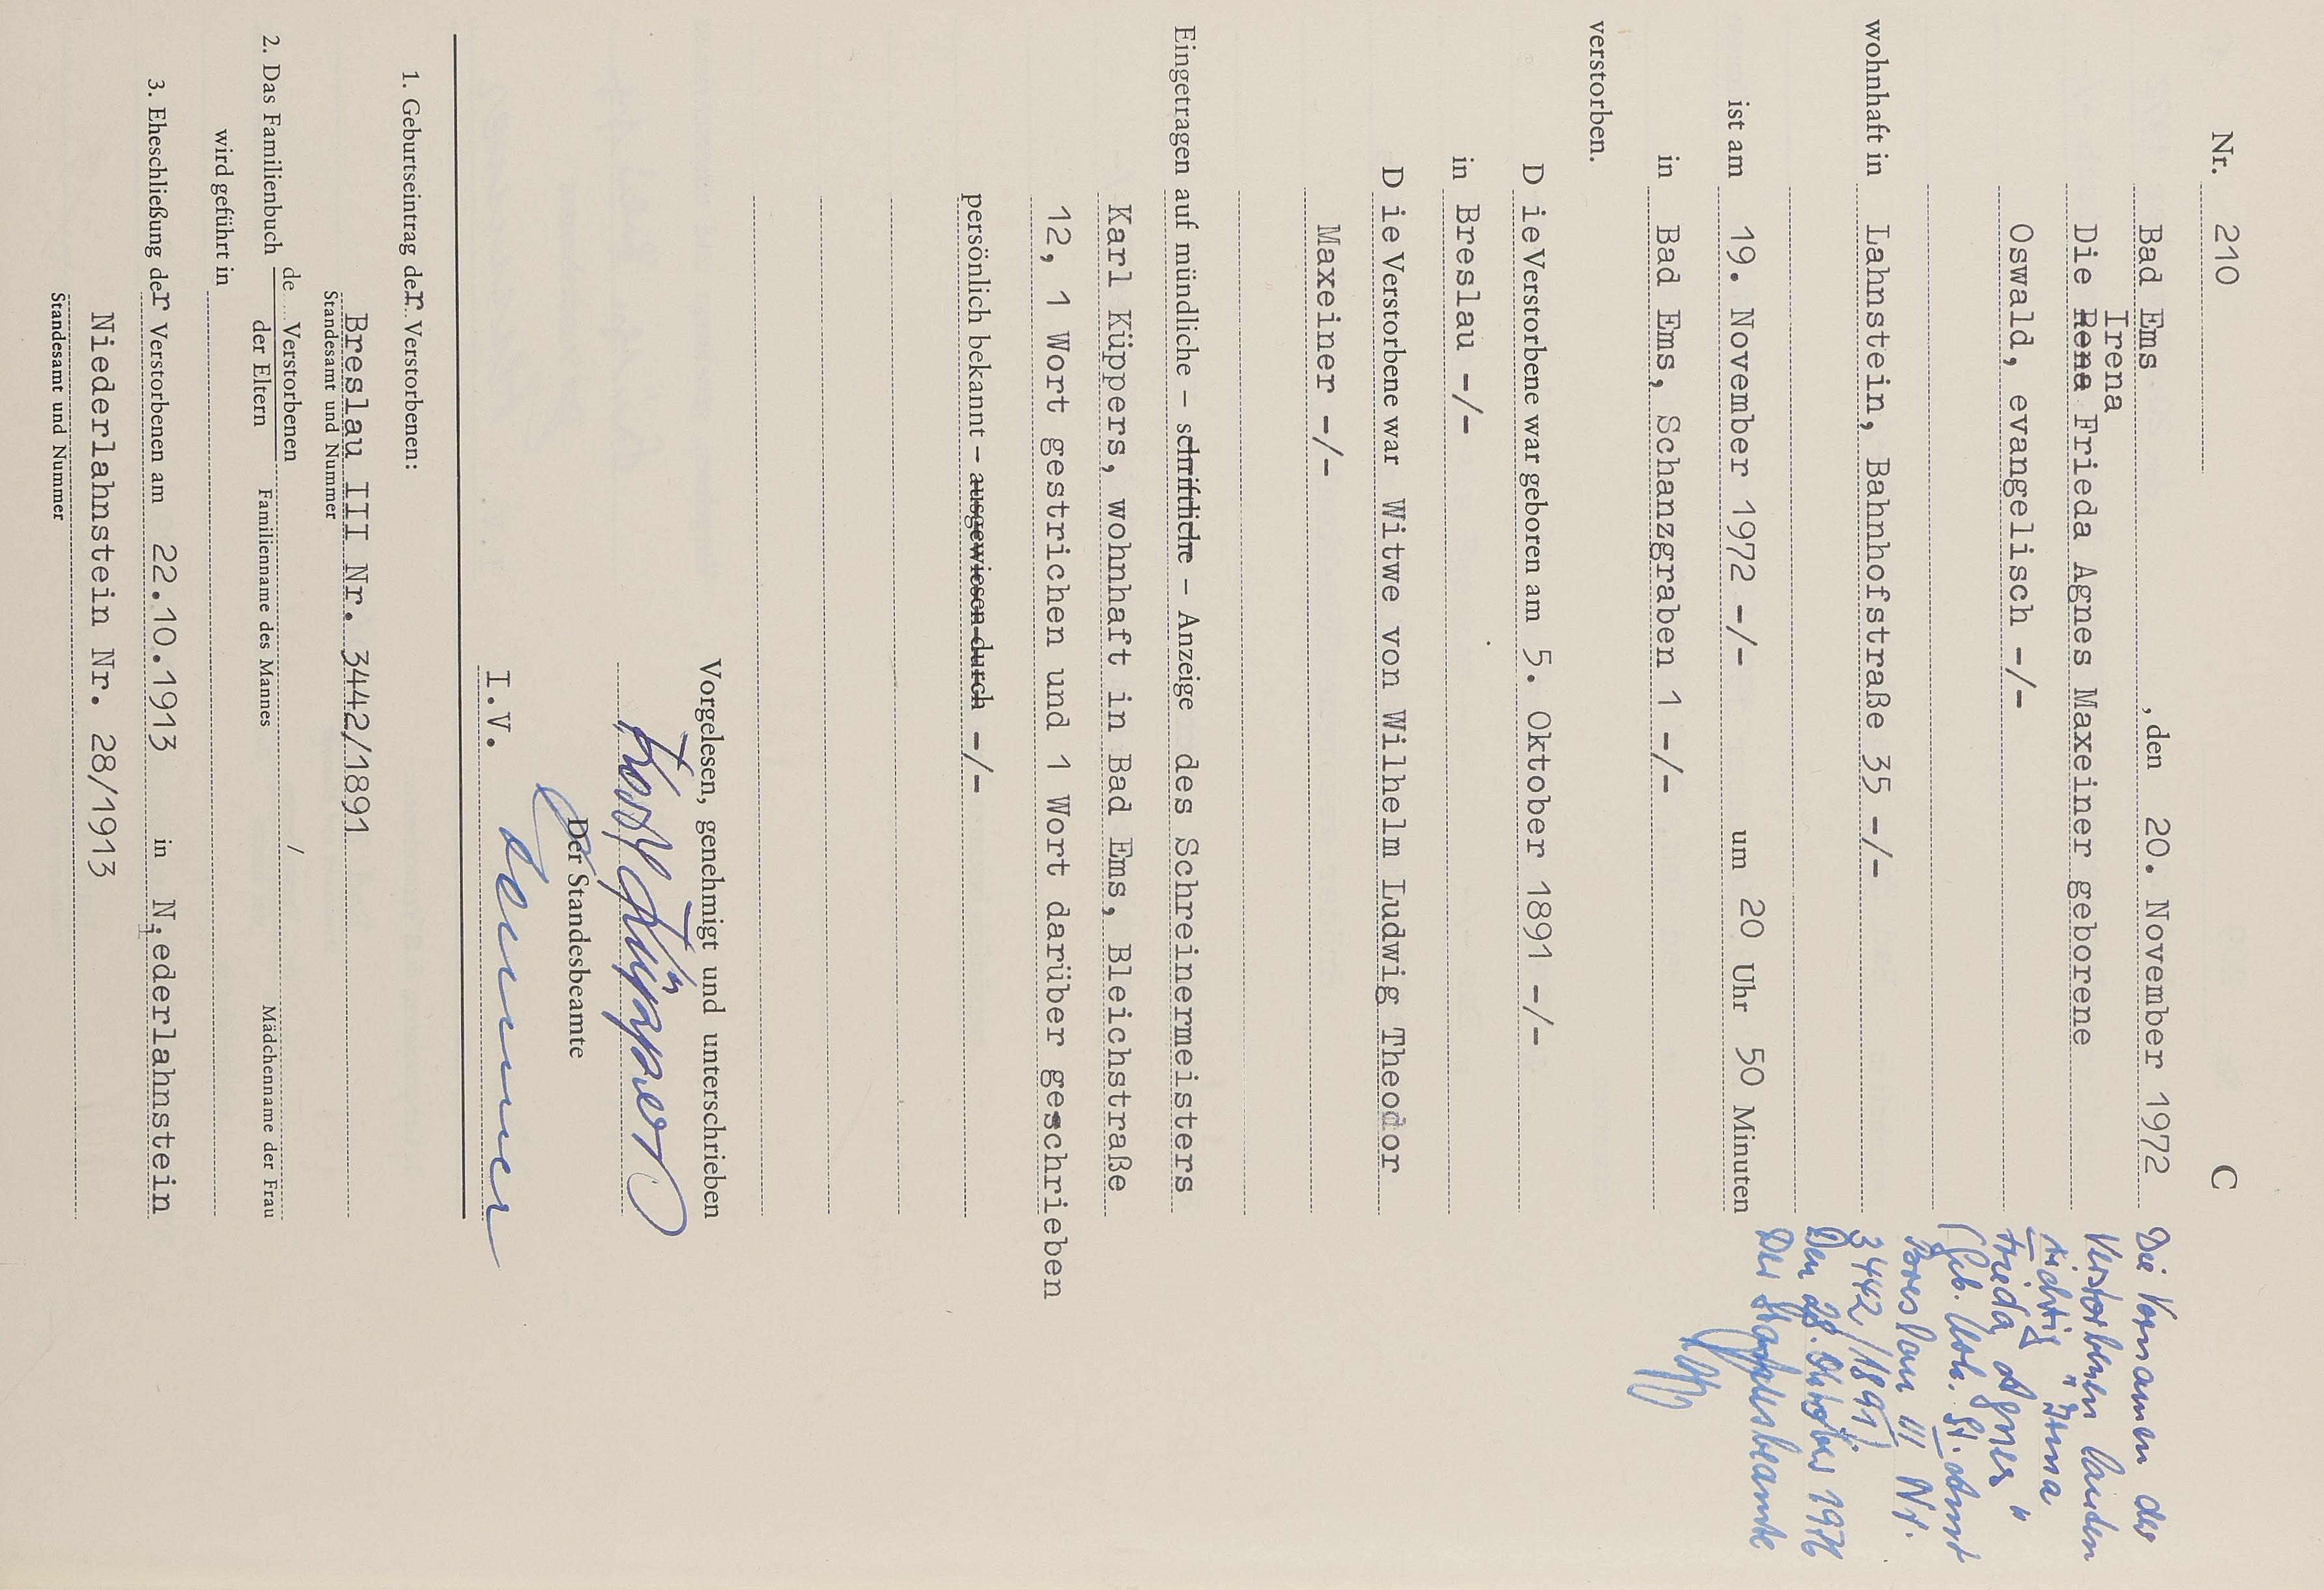 Nr. 210
C
Bad Ems, den 20. November 1972
Irena
Die Rena Frieda Agnes Maxeiner geborene
Oswald, evangelisch -/-
wohnhaft in Lahnstein, Bahnhofstraße 35 -/-
ist am 19. November 1972 -/- um 20 Uhr 50 Minuten
in Bad Ems, Schanzgraben 1 -/-
verstorben.
D ie Verstorbene war geboren am 5. Oktober 1891 -/-
in Breslau -/-
D ie Verstorbene war Witwe von Wilhelm Ludwig Theodor
Maxeiner -/-
Eingetragen auf mündliche – schriftliche – Anzeige des Schreinermeisters
Karl Küppers, wohnhaft in Bad Ems, Bleichstraße
12, 1 Wort gestrichen und 1 Wort darüber geschrieben
persönlich bekannt – ausgewiesen durch -/-
Vorgelesen, genehmigt und unterschrieben
Karl Küppers
Der Standesbeamte
I.V.
1. Geburtseintrag der Verstorbenen:
Breslau III Nr. 3442/1891
Standesamt und Nummer
2. Das Familienbuch de Verstorbenen / der Eltern
Familienname des Mannes
Mädchenname der Frau
wird geführt in
3. Eheschließung der Verstorbenen am 22.10.1913 in N,ederlahnstein
Niederlahnstein Nr. 28/1913
Standesamt und Nummer
Die Vornamen der
Verstorbenen lauten
richtig "Irma
Frieda Agnes"
(Geb. Urk. St. Amt
Breslau III Nr.
3442/1891)
Den 28. Oktober 1976
Der Standesbeamte